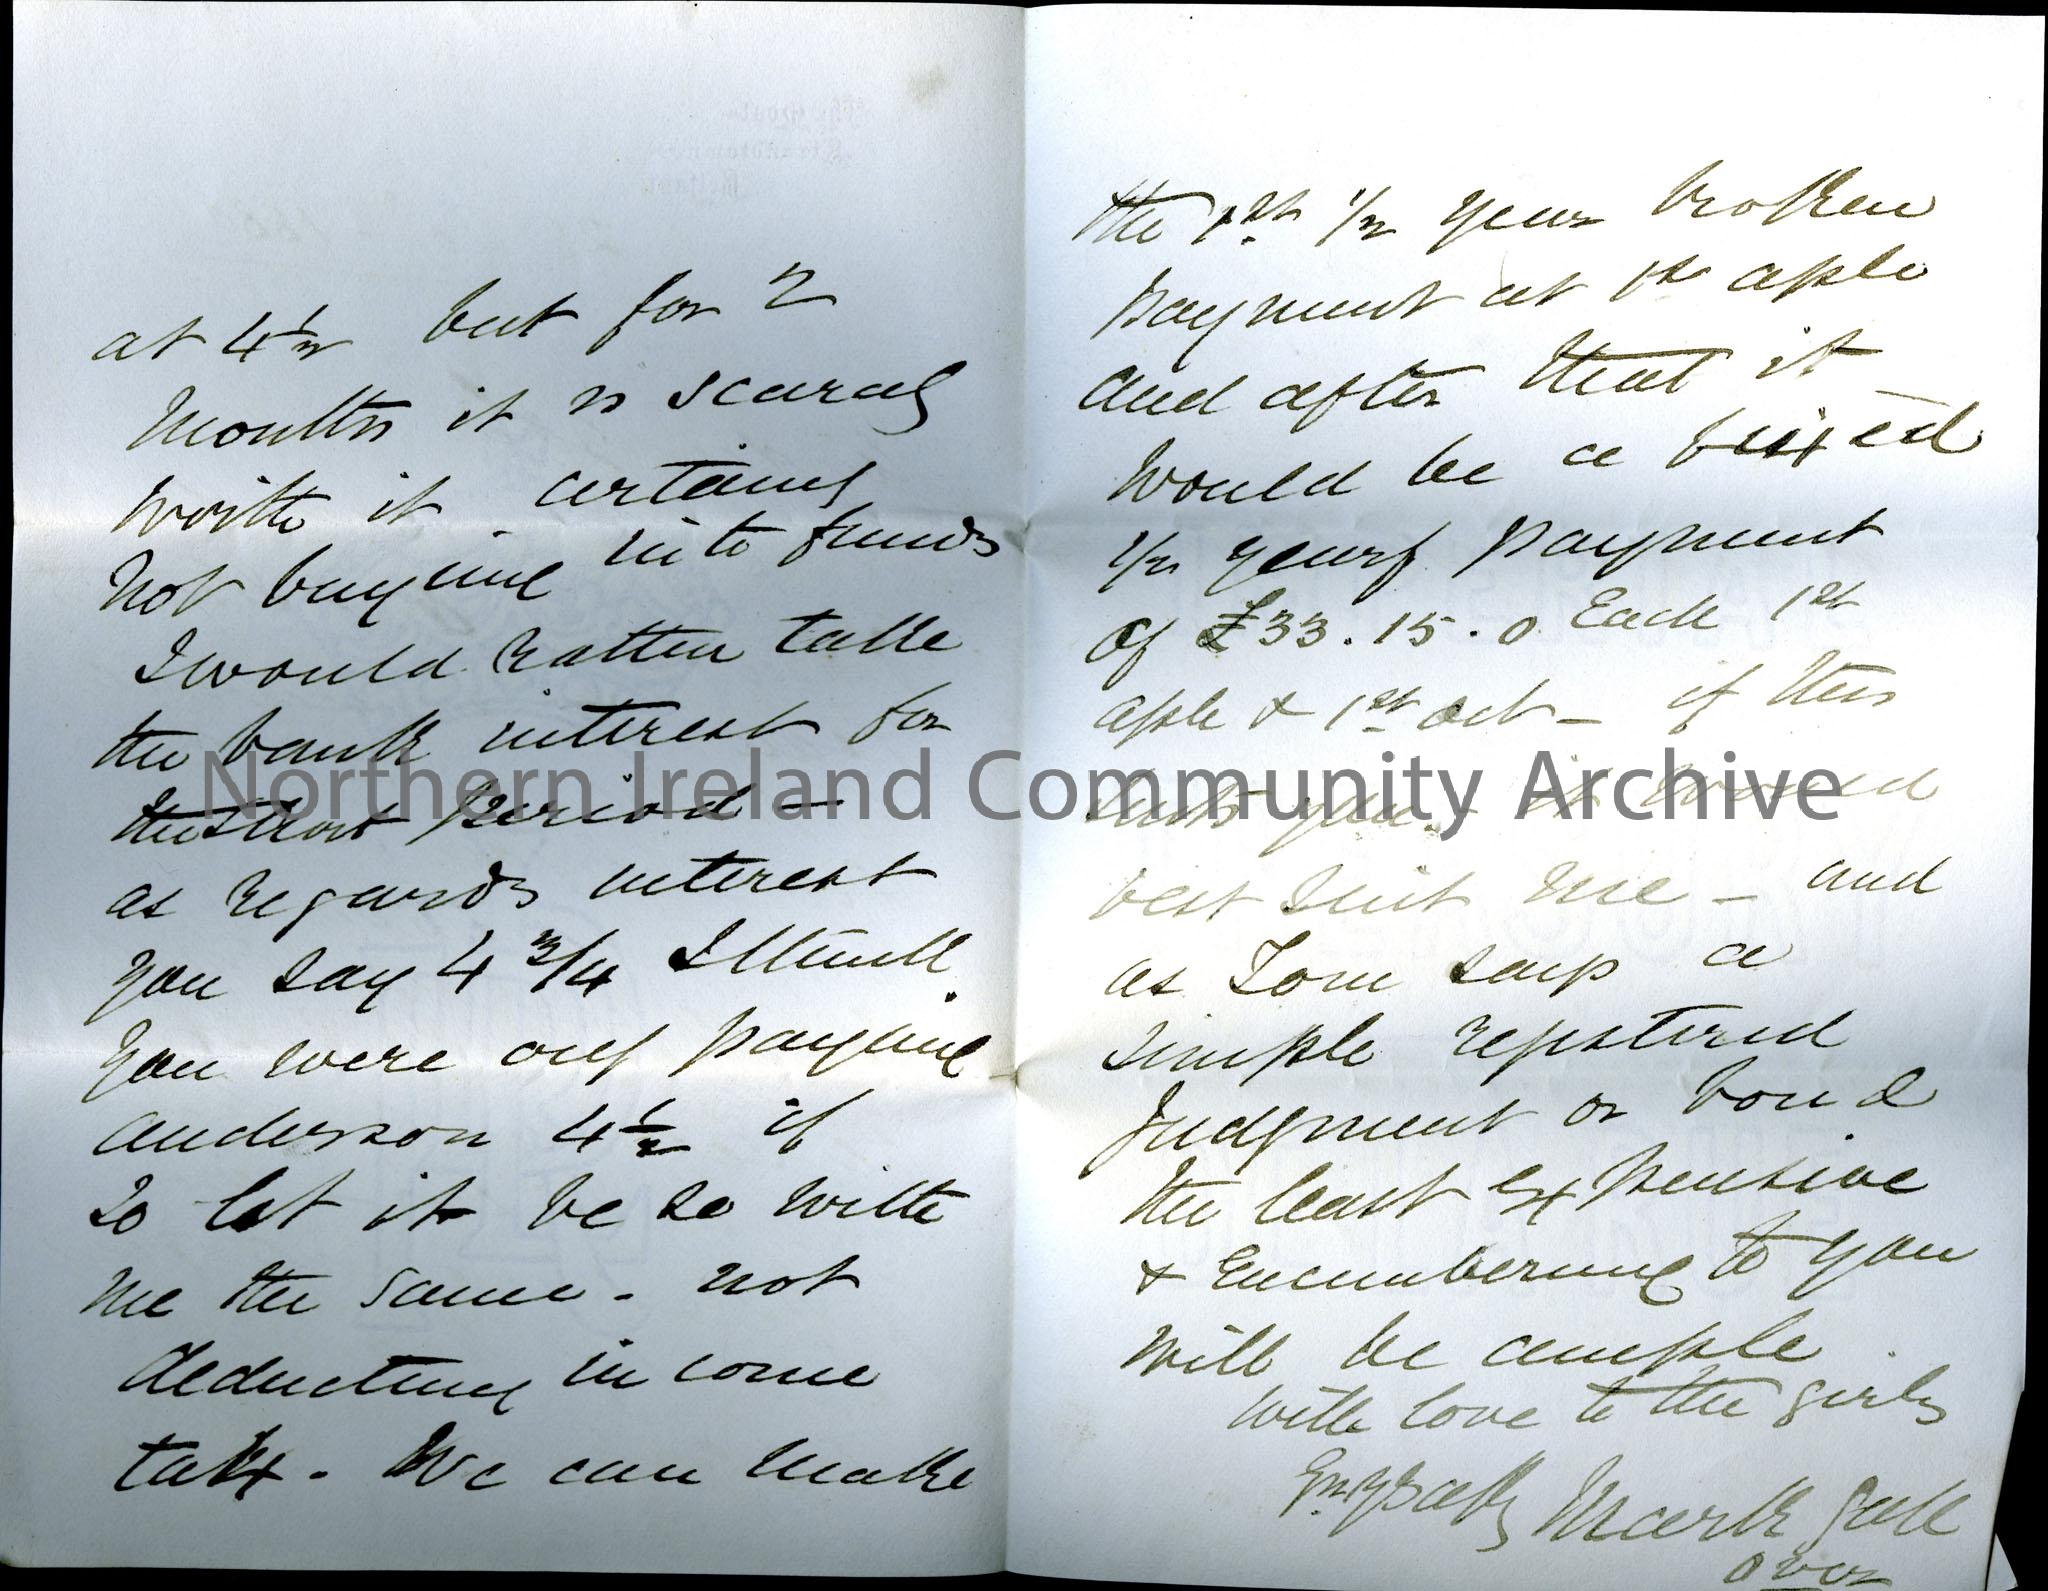 at 4½ but for 2
Months it is scarcely
worth it certainly
Not buying into funds
I would rather take
the bank interest for
the short period –
as regards interest
you say 4 3/4 I think
you were only paying
Anderson 4½ if
so let it be so with
me the same. not
deducting income
tax. We can make
the 1st ½ year broken
payment at 1st aple
and after that it
would be a fixed
½ yearly payment
of £33.15.0 Each 1st
aple & 1st Oct – if this
suits you – it would
best suit me – and
as Tom says a
simple registered
Judgment or bond
the least expensive
& Encumbering to you
will be ample
with love to the girls
Mark Gall
over
Northern Ireland Community Archive